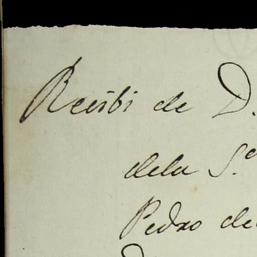 Recibi de D.
dela S.ᵃ
Pedro de